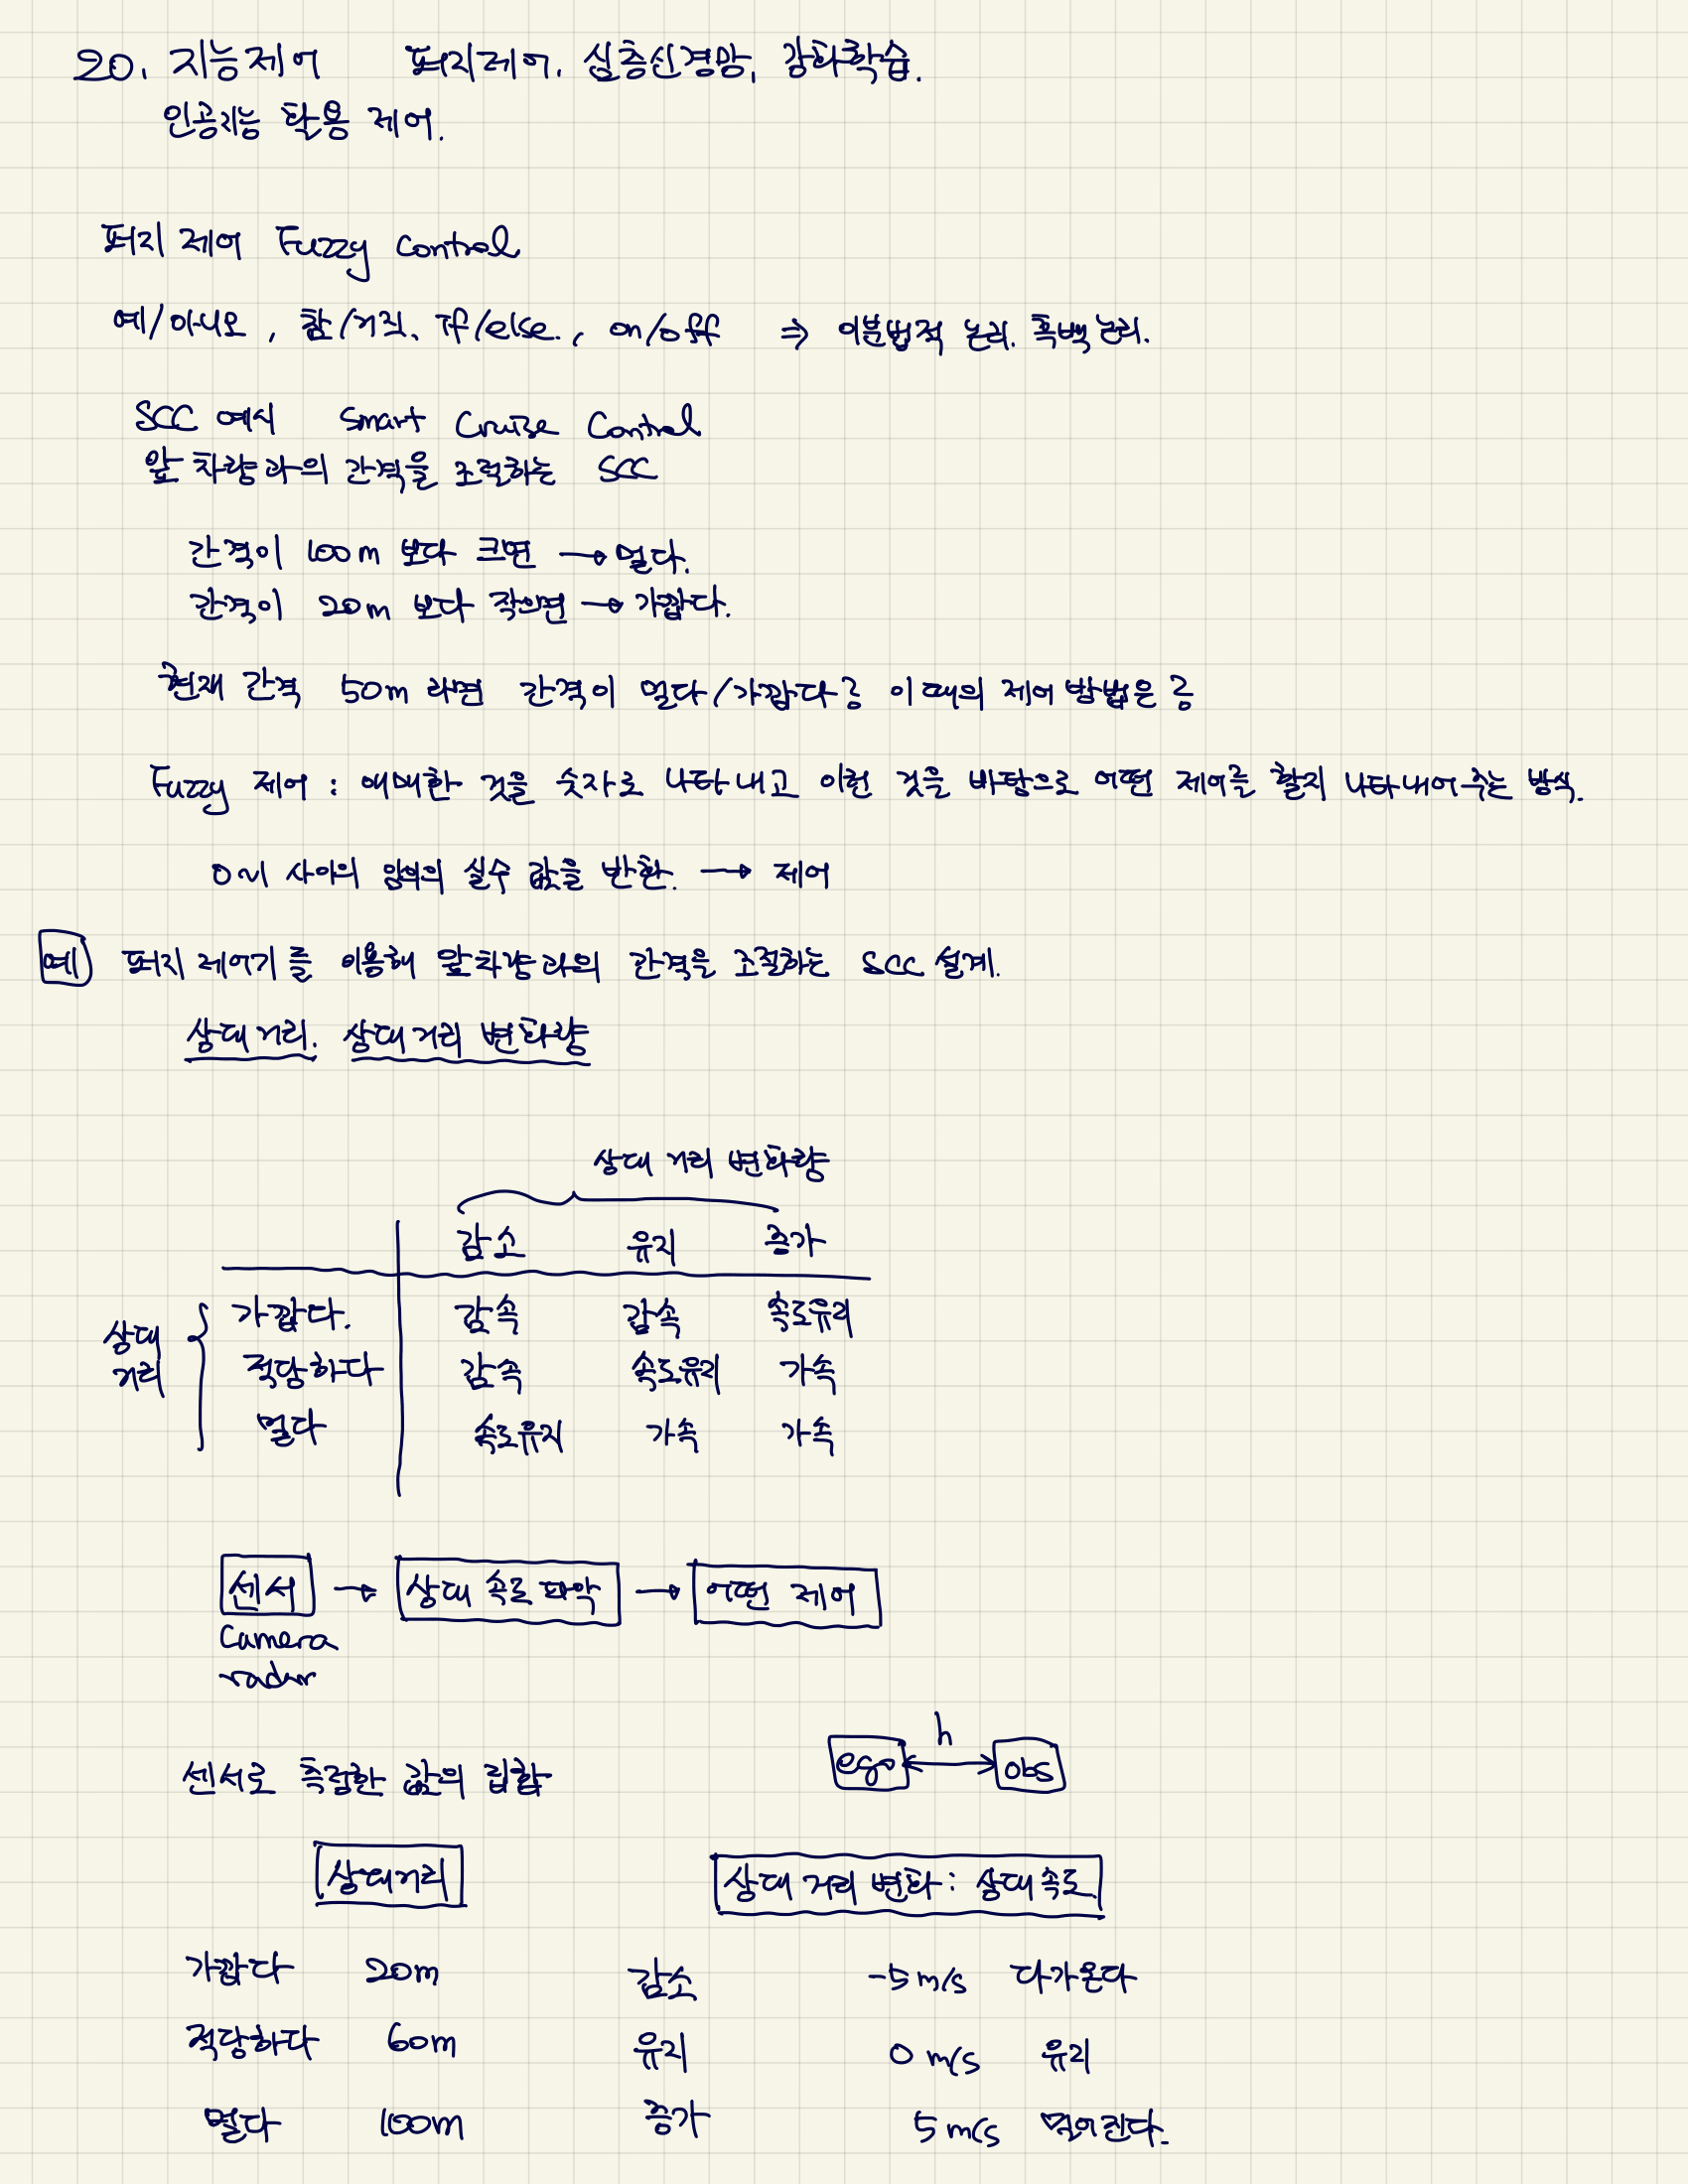 20. 지능제어 퍼지제어. 심층신경망, 강화학습.
인공지능 활용 제어.
퍼지 제어 Fuzzy Control
예/아니오, 참/거짓, If/else., on/off ⇒ 이분법적 논리. 흑백논리.
SCC 예시 Smart Cruise Control
앞 차량과의 간격을 조절하는 SCC
간격이 100m 보다 크면 → 멀다.
간격이 20m 보다 작으면 → 가깝다.
현재 간격 50m 라면 간격이 멀다/가깝다? 이 때의 제어 방법은?
Fuzzy 제어 : 애매한 것을 숫자로 나타내고 이런 것을 바탕으로 어떤 제어를 할지 나타내어 주는 방식.
0~1 사이의 임의의 실수 값을 반환. → 제어
예 퍼지 제어기를 이용해 앞차량과의 간격을 조절하는 SCC 설계.
상대거리. 상대거리 변화량
상대 거리 변화량
감소 유지 증가
가깝다. 감속 감속 속도유지
상대 거리
적당하다 감속 속도유지 가속
멀다 속도유지 가속 가속
센서 → 상대 속도 파악 → 어떤 제어
Camera
radar
h
ego obs
센서로 측정한 값의 집합
상대거리 상대 거리 변화 : 상대속도
가깝다 20m 감소 -5m/s 다가온다
적당하다 60m 유지 0 m/s 유지
멀다 100m 증가 5 m/s 멀어진다.